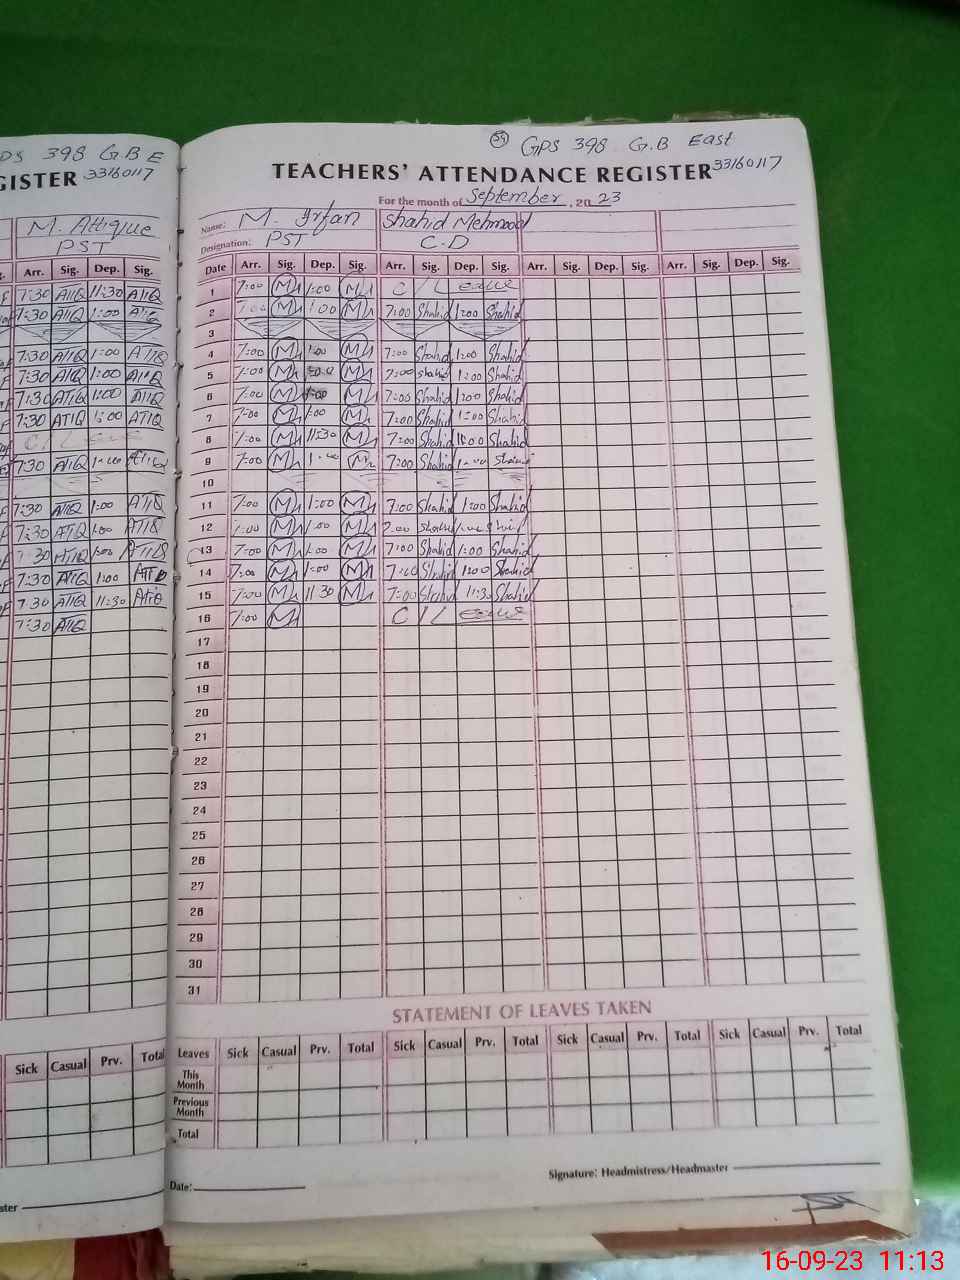 DS 398 G.B E
GISTER 33160117
M. Attique
PST
Arr. Sig. Dep. Sig.
7:30 ATIQ 11:30 ATIQ
7:30 ATIQ 1:00 ATIQ
7:30 ATIQ 1:00 ATIQ
7:30 ATIQ 1:00 ATIQ
7:30 ATIQ 1:00 ATIQ
7:30 ATIQ 1:00 ATIQ
C/Leave
7:30 ATIQ 1:00 ATIQ
7:30 ATIQ 1:00 ATIQ
7:30 ATIQ 1:00 ATIQ
7:30 ATIQ 1:00 ATIQ
7:30 ATIQ 1:00 ATIQ
7:30 ATIQ 11:30 ATIQ
7:30 ATIQ
Sick Casual Prv. Total
ster
59 GPS 398 G.B East
TEACHERS' ATTENDANCE REGISTER 33160117
For the month of September, 20 23
Name: M. Irfan Shahid Mehmood
Designation: PST C.D
Date Arr. Sig. Dep. Sig. Arr. Sig. Dep. Sig. Arr. Sig. Dep. Sig. Arr. Sig. Dep. Sig.
1 7:00 1:00 C/Leave
2 7:00 1:00 7:00 Shahid 1:00 Shahid
3
4 7:00 1:00 7:00 Shahid 1:00 Shahid
5 7:00 7:00 Shahid 1:00 Shahid
6 7:00 1:00 7:00 Shahid 1:00 Shahid
7 7:00 1:00 7:00 Shahid 1:00 Shahid
8 7:00 11:30 7:00 Shahid Shahid
9 7:00 1:00 7:00 Shahid 1:00 Shahid
10
11 7:00 1:00 7:00 Shahid 1:00 Shahid
12 7:00 1:00 7:00 Shahid 1:00 Shahid
13 7:00 1:00 7:00 Shahid 1:00 Shahid
14 7:00 1:00 7:00 Shahid 1:00 Shahid
15 7:00 11:30 7:00 Shahid 11:30 Shahid
16 7:00 C/Leave
17
18
19
20
21
22
23
24
25
26
27
28
29
30
31
STATEMENT OF LEAVES TAKEN
Leaves Sick Casual Prv. Total Sick Casual Prv. Total Sick Casual Prv. Total Sick Casual Prv. Total
This Month
Previous Month
Total
Signature: Headmistress/Headmaster
Date:
16-09-23 11:13